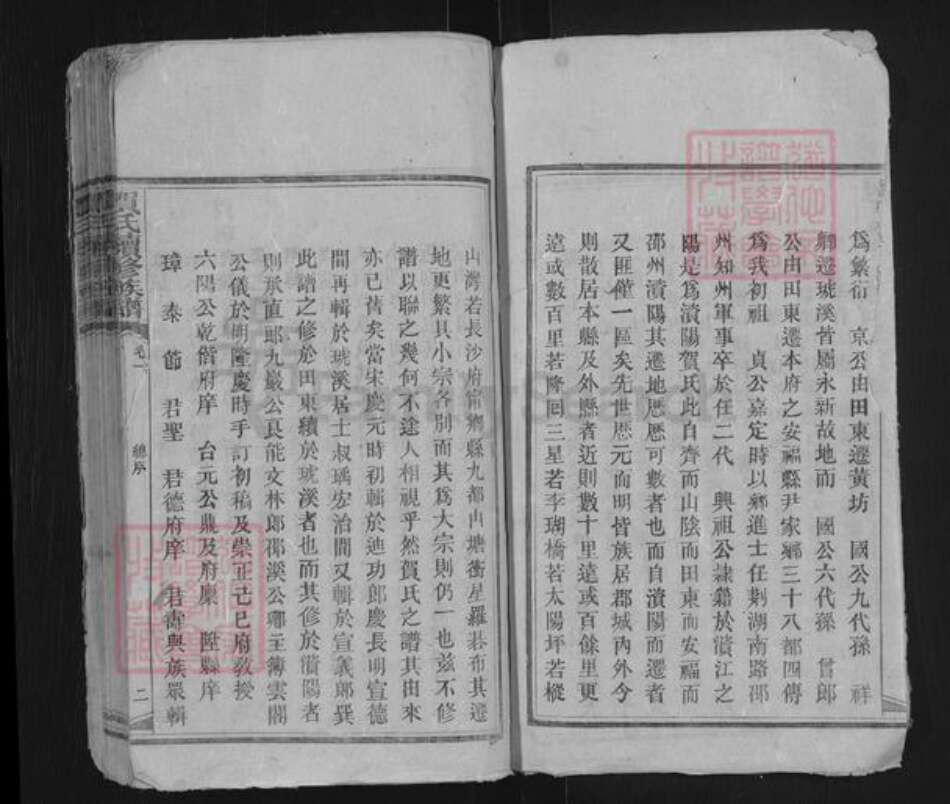 為繁衍 京公由田東遷黃坊 國公九代孫 祥
卿遷琥溪昔屬永新故地而 國公六代孫 晉郎
公由田東遷本府之安福縣尹家鄉三十八都四傳
為我初祖 貞公嘉定時以鄉進士任荆湖南路邵
州知州軍事卒於任二代 興祖公隷籍於濱江之
陽是為濱陽賀氏此自齊而山陰而田東而安福而
邵州濱陽其遷地歷歷可數者也而自濱陽而遷者
又匪僅一區矣先世歷元而明皆族居郡城內外今
則散居本縣及外縣者近則數十里遠或百餘里更
遠或數百里若隆回三星若李瑚橋若太陽坪若樅
山灣若長沙府甯鄉縣九都山塘衝星羅碁布其遷
地更繁其小宗各別而其為大宗則仍一也兹不修
譜以聯之幾何不途人相視乎然賀氏之譜其由來
亦已舊矣當宋慶元時初輯於迪功郎慶長明宣德
間再輯於琥溪居士叔瑀宏治間又輯於宣義郎巽
此譜之修於田東續於琥溪者也而其修於濱陽者
則承直郎九巖公良能文林郎邵溪公哪主簿雲閣
公儀於明隆慶時手訂初稿及崇正己巳府教授
六陽公乾偕府庠 台元公鼎及府廩 陞縣庠
璋 秦 節 君聖 君德府庠 君壽與族眾輯
賀氏續修族譜
卷一
總序
二